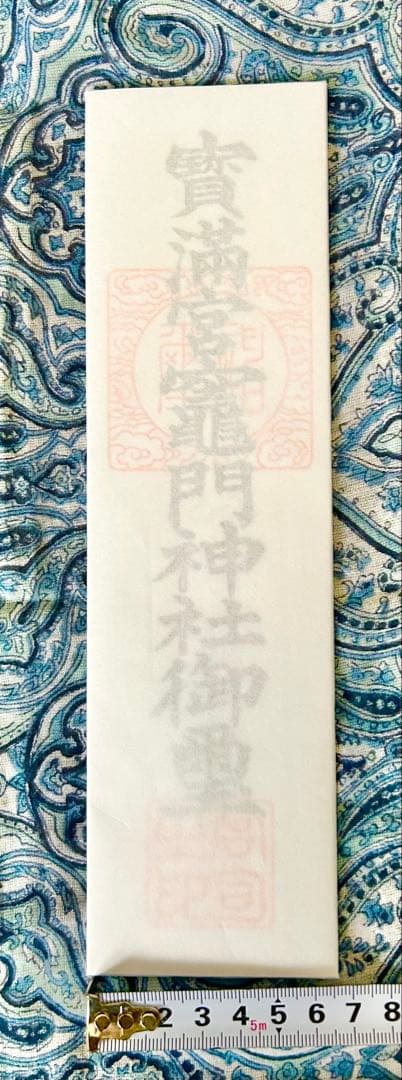 寳滿宮竈門神社御璽
2 3 4 5 6 7 8
5m